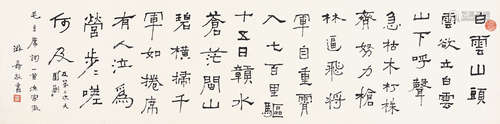 白雲山頭
雲欲立白雲
山下呼聲
急枯木朽株
齊努力槍
林逼飛將
軍自重霄
入七百里驅
十五日贛水
蒼茫閩山
碧橫掃千
軍如捲席
有人泣為
營步〻嗟
何及 反第二次大圍剿
毛主席詞一首漁家傲
游壽敬書